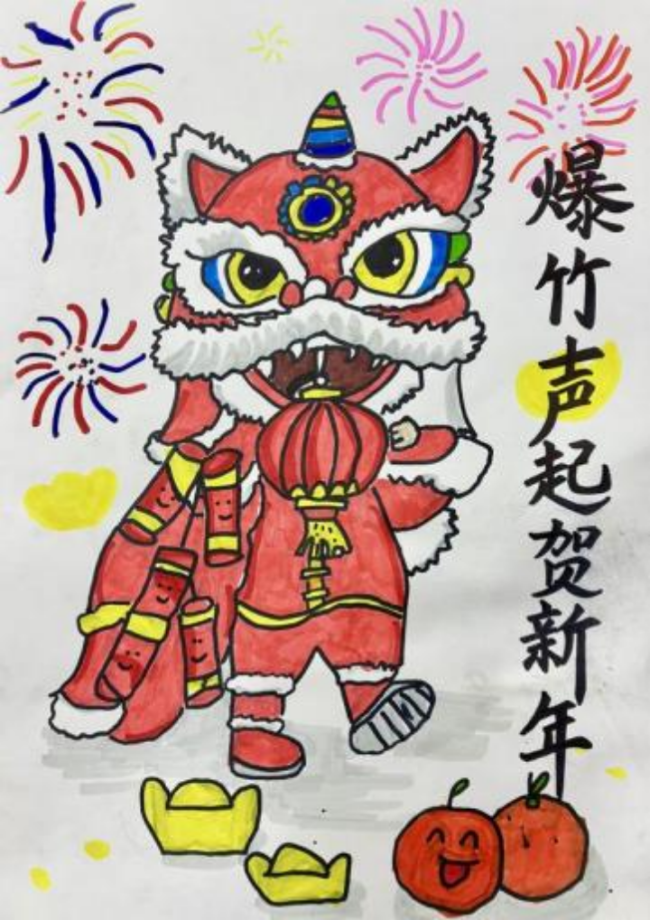 爆竹声起贺新年